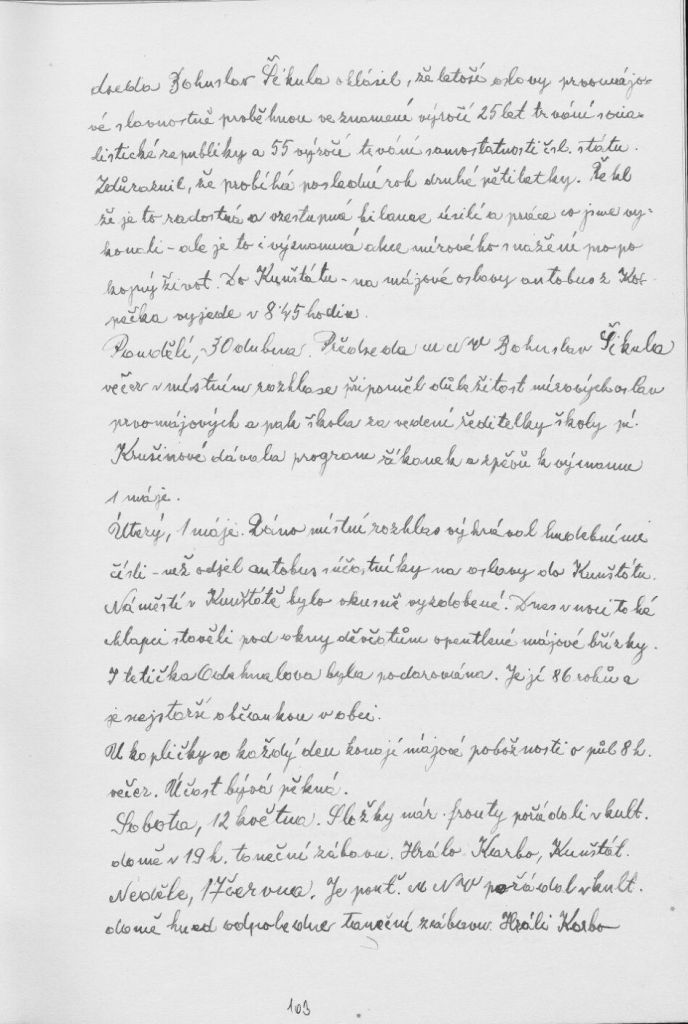 dseda Bohuslav Šikula ohlásil, že letoší oslavy prvomájo-
vé slavnostně proběhnou ve znamení výročí 25 let trvání socia-
listické republiky a 55 výročí trvání samostatnosti čsl. státu.
Zdůraznil, že probíhá poslední rok druhé pětiletky. Řekl
že je to radostná a vzestupná bilance úsilí a práce co jsme vy-
konali - ale je to i významná akce mírového snažení pro po
kojný život. Do Kunštátu - na májové oslavy autobus z
pečka vyjede v 8'45 hodin.
Pondělí, - 30 dubna. Předseda M N V Bohuslav Šikula
večer v místním rozhlase připoměl důležitost mírových oslav
prvomájových a pak škola za vedení ředitelky školy pí.
Krušinové dávala program žákonek a zpěvů k významu
1 máje.
Úterý, 1 máje. Ráno místní rozhlas vyhrával hudebními
čísli - než odjel autobus s účastníky na oslavy do Kunštátu.
Náměstí v Kunštátě bylo vkusně vyzdobené. Dnes v noci také
chlapci stavěli pod okny děvčatům opentlené májové břízky.
I tetička Odehnalova byla podarována. Je jí 86 roků a
je nejstarší občankou v obci.
U kapličky se každý den konají májové pobožnosti v půl 8 h.
večer. Účast bývá pěkná.
Sobota, 12 května. Složky nár. fronty pořádali v kult.
domě v 19 h. taneční zábavu. Hrálo Karbo, Kunštát.
Neděle, 17 června. Je pouť. M N V pořádal v kult.
domě hned odpoledne taneční zábavu. Hráli Karbo
103